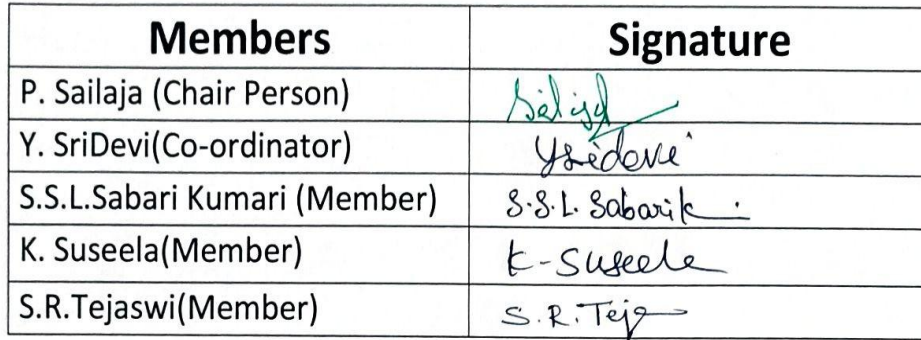 Members Signature
P. Sailaja (Chair Person) Sailaja
Y. SriDevi(Co-ordinator) Ysridevi
S.S.L.Sabari Kumari (Member) S.S.L. Sabarik
K. Suseela(Member) K-Suseela
S.R.Tejaswi(Member) S.R.Teja